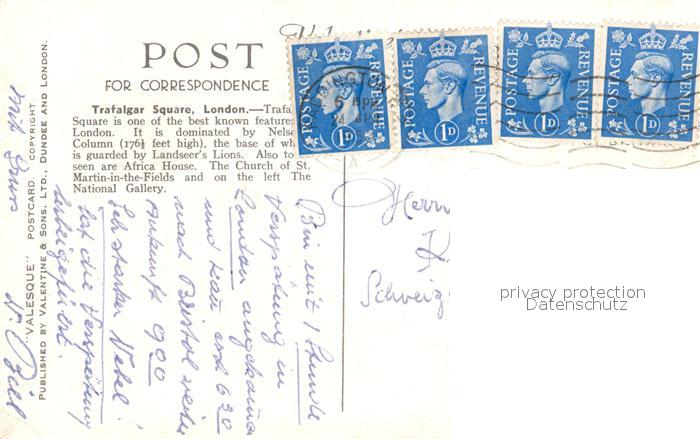 POST
FOR CORRESPONDENCE
Trafalgar Square, London.—Trafa
Square is one of the best known features
London. It is dominated by Nels
Column (176½ feet high), the base of wh
is guarded by Landseer's Lions. Also to
seen are Africa House. The Church of St.
Martin-in-the-Fields and on the left The
National Gallery.
"VALESQUE" POSTCARD. COPYRIGHT.
PUBLISHED BY VALENTINE & SONS, LTD., DUNDEE AND LONDON.
POSTAGE REVENUE 1D
POSTAGE REVENUE 1D
POSTAGE REVENUE 1D
POSTAGE REVENUE 1D
Bin mit 1 Stunde
Verspätung in
London
und kann erst 630
nach Bristol weiter
Ankunft 900
Sehr starker Nebel
hat die Verspätung
herbeigeführt.
mit Gruss
Herrn
Schweiz
privacy protection
Datenschutz